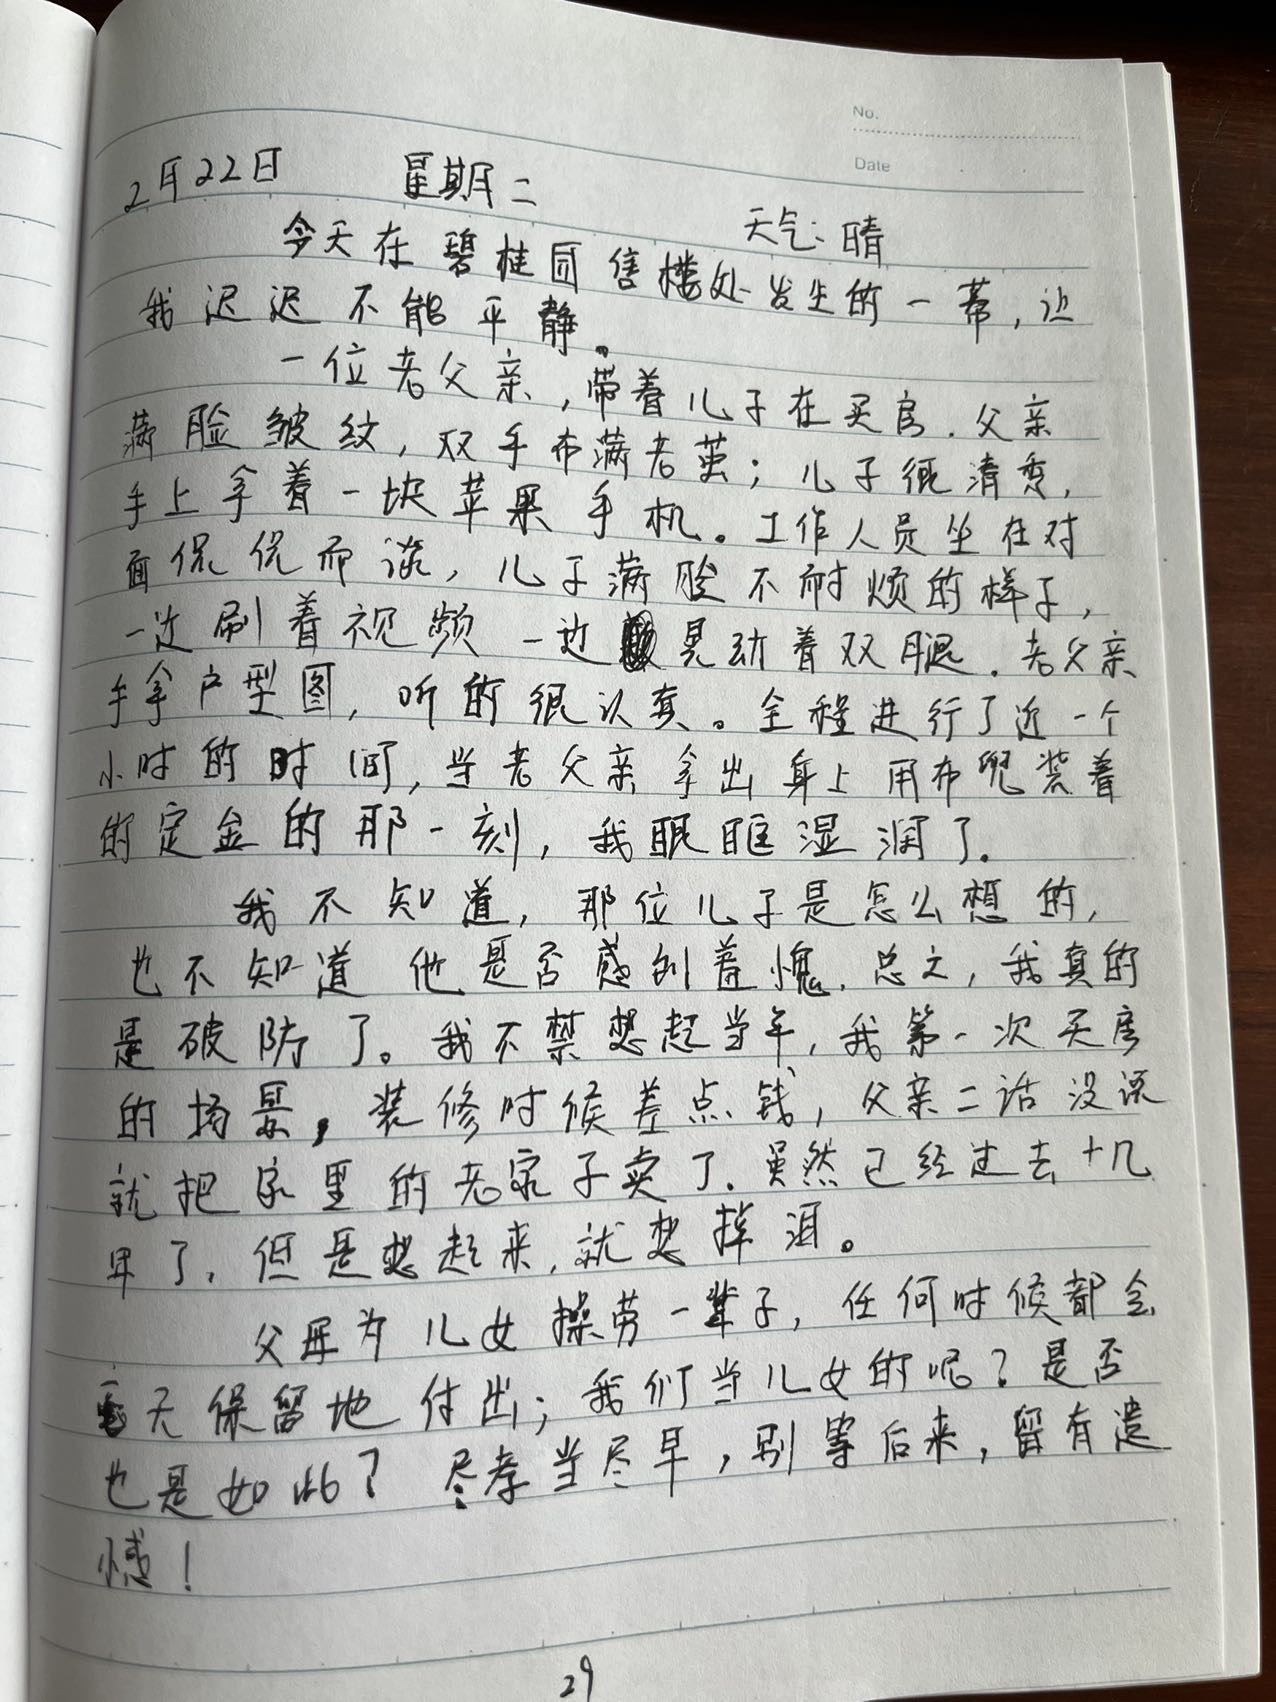 No.
Date
2月22日 星期二 天气:晴
今天在碧桂园售楼处发生的一幕,让
我迟迟不能平静。
一位老父亲,带着儿子在买房.父亲
满脸皱纹,双手布满老茧;儿子很清秀,
手上拿着一块苹果手机。工作人员坐在对
面侃侃而谈,儿子满脸不耐烦的样子,
一边刷着视频一边晃动着双腿.老父亲
手拿户型图,听的很认真。全程进行了近一个
小时的时间,当老父亲拿出身上用布兜装着
的定金的那一刻,我眼眶湿润了.
我不知道,那位儿子是怎么想的,
也不知道他是否感到羞愧.总之,我真的
是破防了。我不禁想起当年,我第一次买房
的场景。装修时候差点钱,父亲二话没说
就把家里的老家子卖了.虽然已经过去十几
年了,但是想起来,就想掉泪。
父母为儿女操劳一辈子,任何时候都会
无保留地付出;我们当儿女的呢?是否
也是如此?尽孝当尽早,别等后来,留有遗
憾!
29